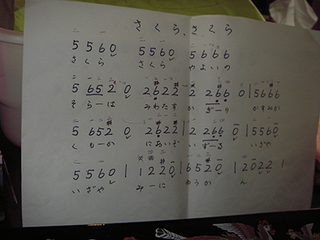 さくら、さくら
5 5 6 0 5 5 6 0 5 6 6 6
さくら さくら やよいの
5 65 2 0 2 6 2 2 2 2 6 6 0 | 5 6 6 6
そらーは みわたす かぎーり かすみか
5 65 2 0 2 6 2 2 2 2 6 6 0 | 5 5 6 0
くもーか においぞ いずーる いざや
5 5 6 0 | 1 2 2 0 | 6 5 2 0 | 2 0 2 2 |
いざや みーに ゆうか ん